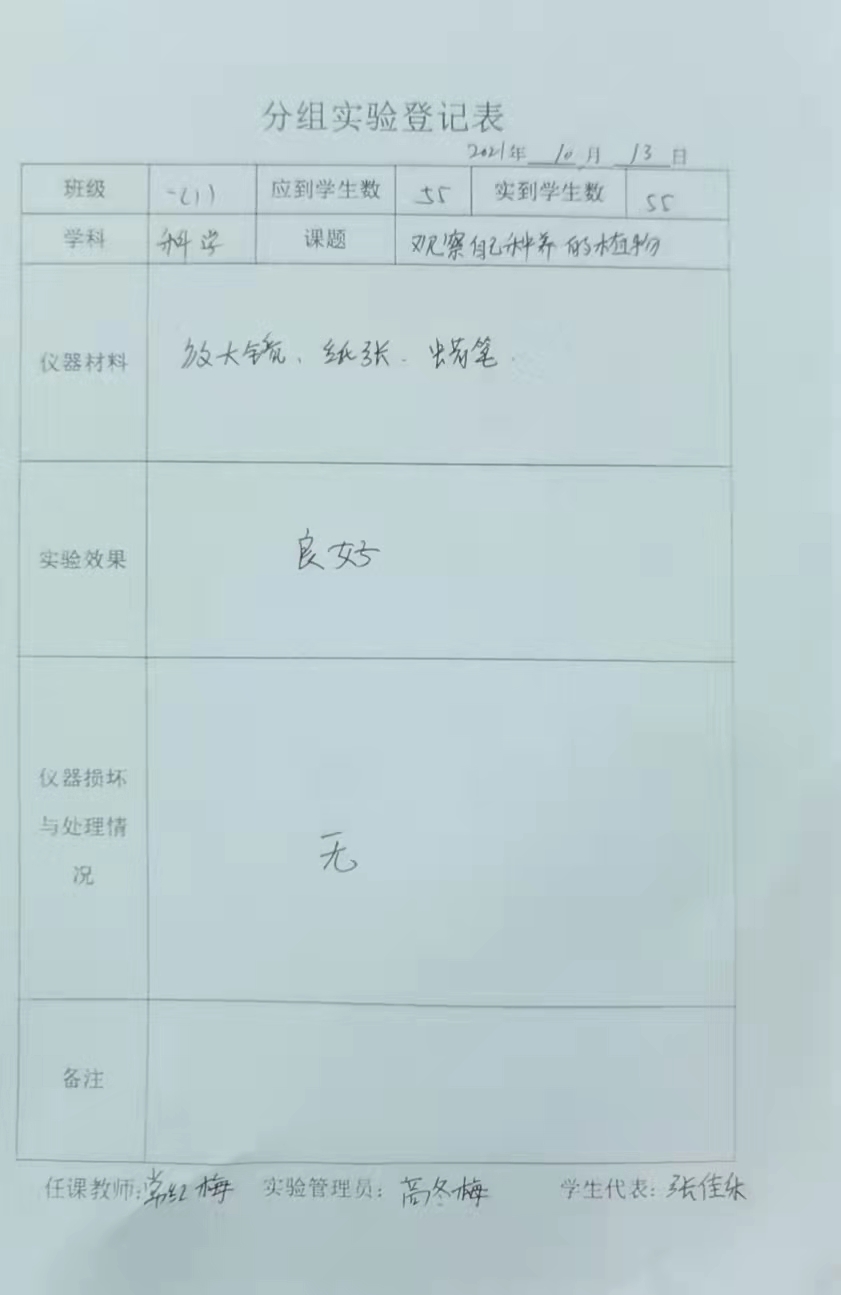 分组实验登记表
2021年 10 月 13 日
班级 一(1) 应到学生数 55 实到学生数 55
学科 科学 课题 观察自己种养的植物
仪器材料 放大镜、纸张、蜡笔.
实验效果 良好
仪器损坏
与处理情
况
无
备注
任课教师:常红梅 实验管理员:高冬梅 学生代表:张佳乐